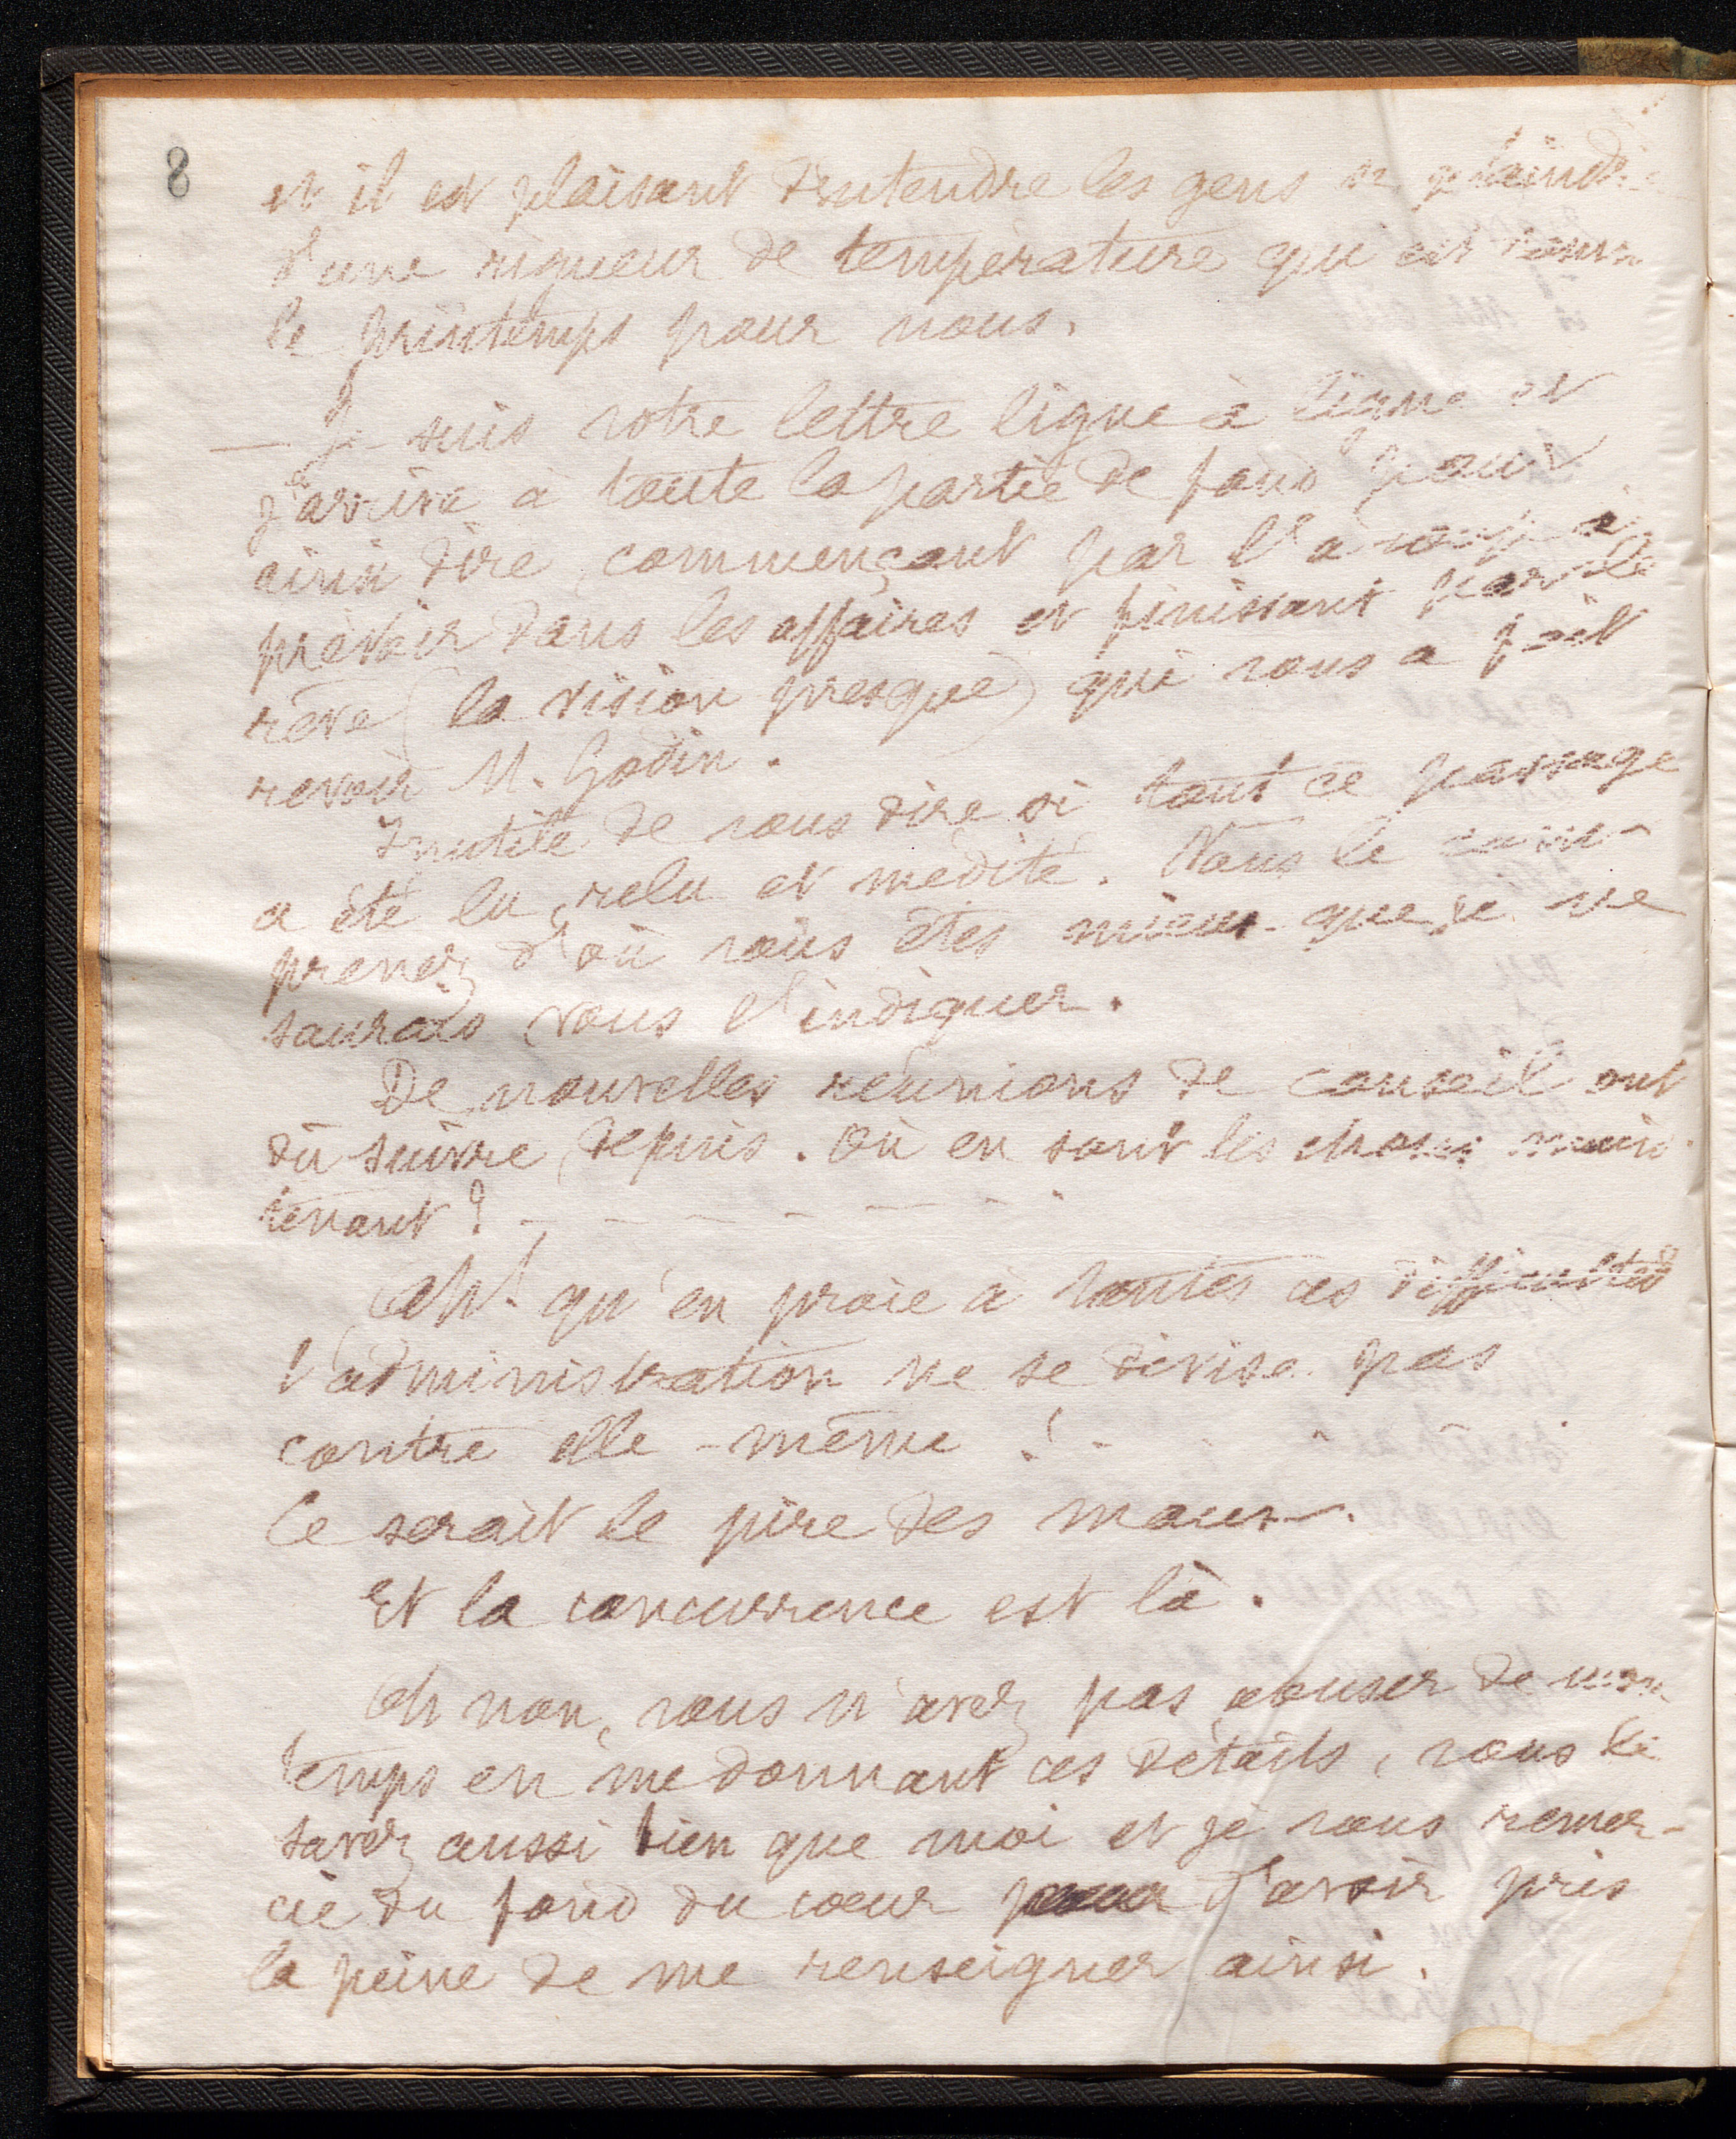 8
et il est plaisant d'entendre les gens se plaindre
d'une rigueur de température qui est
le printemps pour nous.
— Je suis votre lettre ligne à ligne et
j'arrive à toute la partie de fond pour
ainsi dire, commençant par l'à-coup à
prévoir dans les affaires et finissant par le
rêve (la vision presque) qui vous a fait
revoir M. Godin.
Inutile de vous dire si tout ce passage
a été lu, relu et medité. Vous le com-
prenez d'où vous êtes mieux que je ne
saurais vous l'indiquer.
De nouvelles réunions de conseil ont
dû suivre depuis. Où en sont les choses main-
tenant ? - - - - - - -
Oh! qu'en proie à toutes ces difficultés
l'administration ne se divise pas
contre elle-même ! - - - -
Ce serait le pire des maux.
Et la concurrence est là.
Oh non, vous n'avez pas abuser de mon
temps en me donnant ces détails, vous le
savez aussi bien que moi et je vous remer-
cie du fond du coeur d'avoir pris
la peine de me renseigner ainsi.